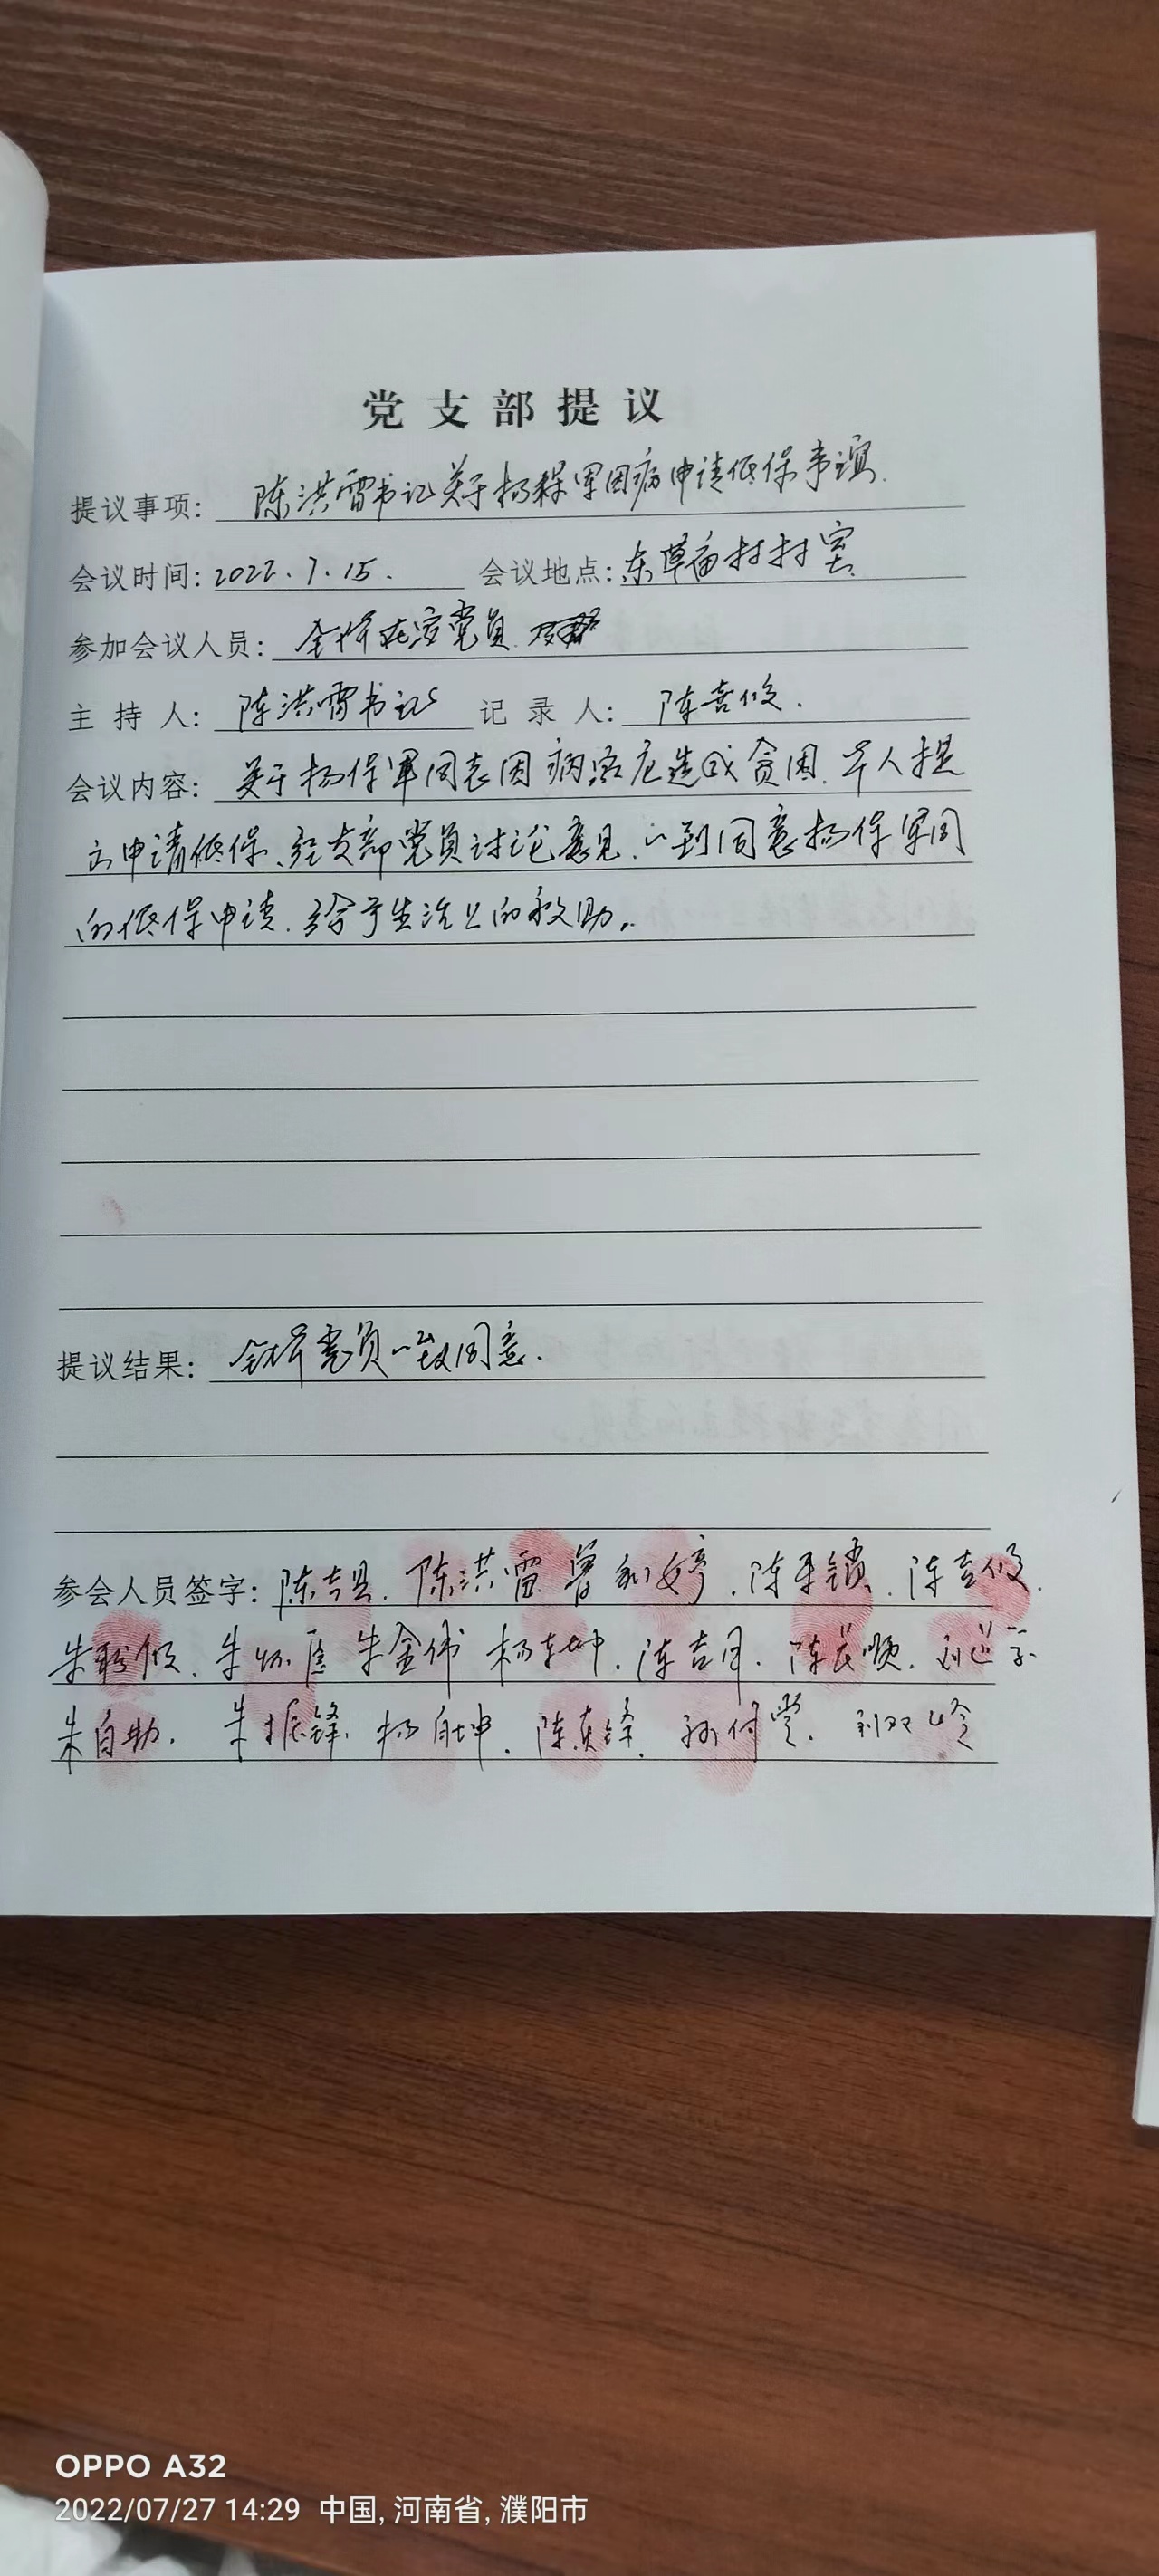 党支部提议
提议事项: 陈洪雷书记关于杨保军因病申请低保事谊.
会议时间: 2022.7.15. 会议地点: 东草庙村村室
参加会议人员: 全体在家党员.
主持人: 陈洪雷书记 记录人: 陈喜俊.
会议内容: 关于杨保军同志因病 造成贫困. 本人提
出申请低保、经支部党员讨论意见. 一到同意杨保军同
的低保申请. 给予生活上的救助。
提议结果: 全体党员一致同意.
参会人员签字: 陈吉 . 陈洪雷 曾利婷. 陈 锁. 陈喜俊.
朱 俊. 朱怀 朱金伟 杨 坤. 陈吉月. 陈 顺. 刘 学.
朱自助. 朱振锋. 杨自坤. 陈 锋. 孙付 . 刘双岭
OPPO A32
2022/07/27 14:29 中国, 河南省, 濮阳市